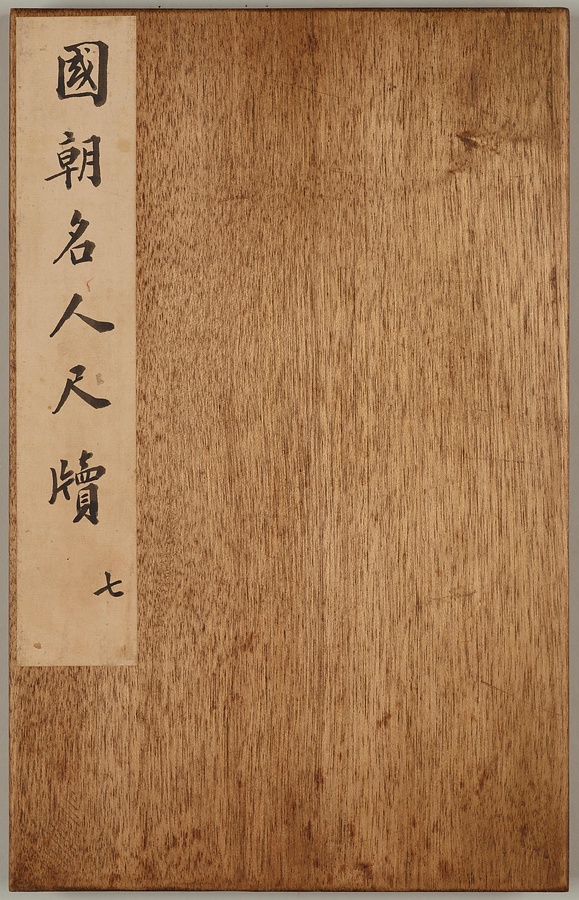 國朝名人尺牘
七